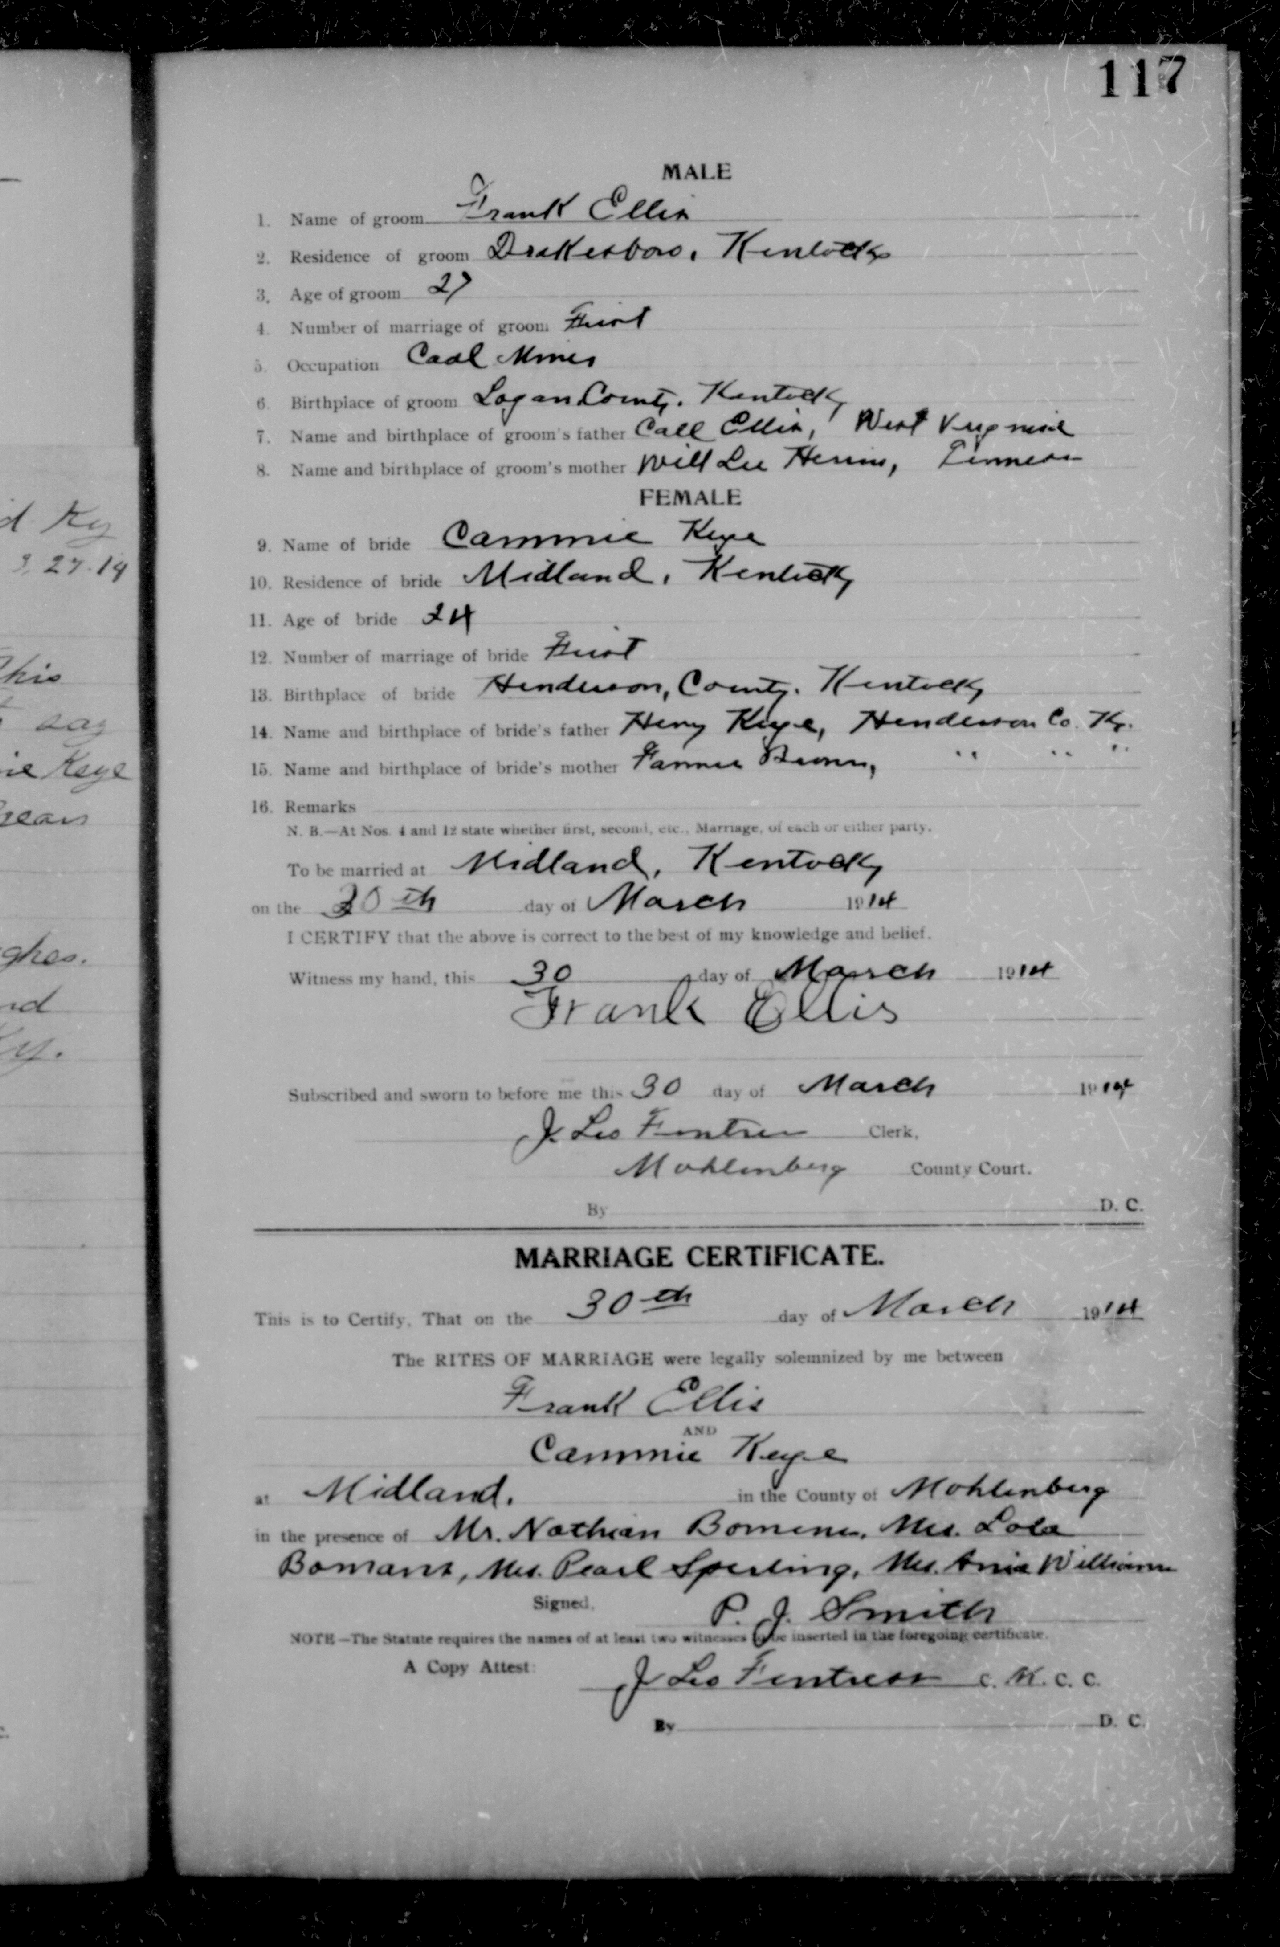 117
MALE
1. Name of groom Frank Ellis
2. Residence of groom Drakesboro, Kentucky
3. Age of groom 27
4. Number of marriage of groom First
5. Occupation Coal Miner
6. Birthplace of groom Logan County. Kentucky
7. Name and birthplace of groom's father Call Ellis, West Virginia
8. Name and birthplace of groom's mother Will Lee
FEMALE
9. Name of bride Cammie Keye
10. Residence of bride Midland, Kentucky
11. Age of bride 24
12. Number of marriage of bride First
13. Birthplace of bride Henderson, County. Kentucky
14. Name and birthplace of bride's father Henry Keye, Henderson Co. Ky.
15. Name and birthplace of bride's mother Fannie Brown, " " "
16. Remarks
N. B.—At Nos. 4 and 12 state whether first, second, etc., Marriage, of each or either party.
To be married at Midland, Kentucky
on the 30th day of March 1914
I CERTIFY that the above is correct to the best of my knowledge and belief.
Witness my hand, this 30 day of March 1914
Frank Ellis
Subscribed and sworn to before me this 30 day of March 1914
J Leo Fentress Clerk,
Mohlenberg County Court.
By D. C.
MARRIAGE CERTIFICATE.
This is to Certify, That on the 30th day of March 1914
The RITES OF MARRIAGE were legally solemnized by me between
Frank Ellis
AND
Cammie Keye
at Midland. in the County of Mohlenberg
in the presence of Mr. Nathian Mrs. Lola
Mrs. Pearl Sperling, Mrs. Williams
Signed, P. J. Smith
NOTE—The Statute requires the names of at least two witnesses to be inserted in the foregoing certificate.
A Copy Attest: J Leo Fentress C. M. C. C.
By D. C.
d Ky
3, 27-14
this
say
ie Keye
years
ghes.
nd
Ky.